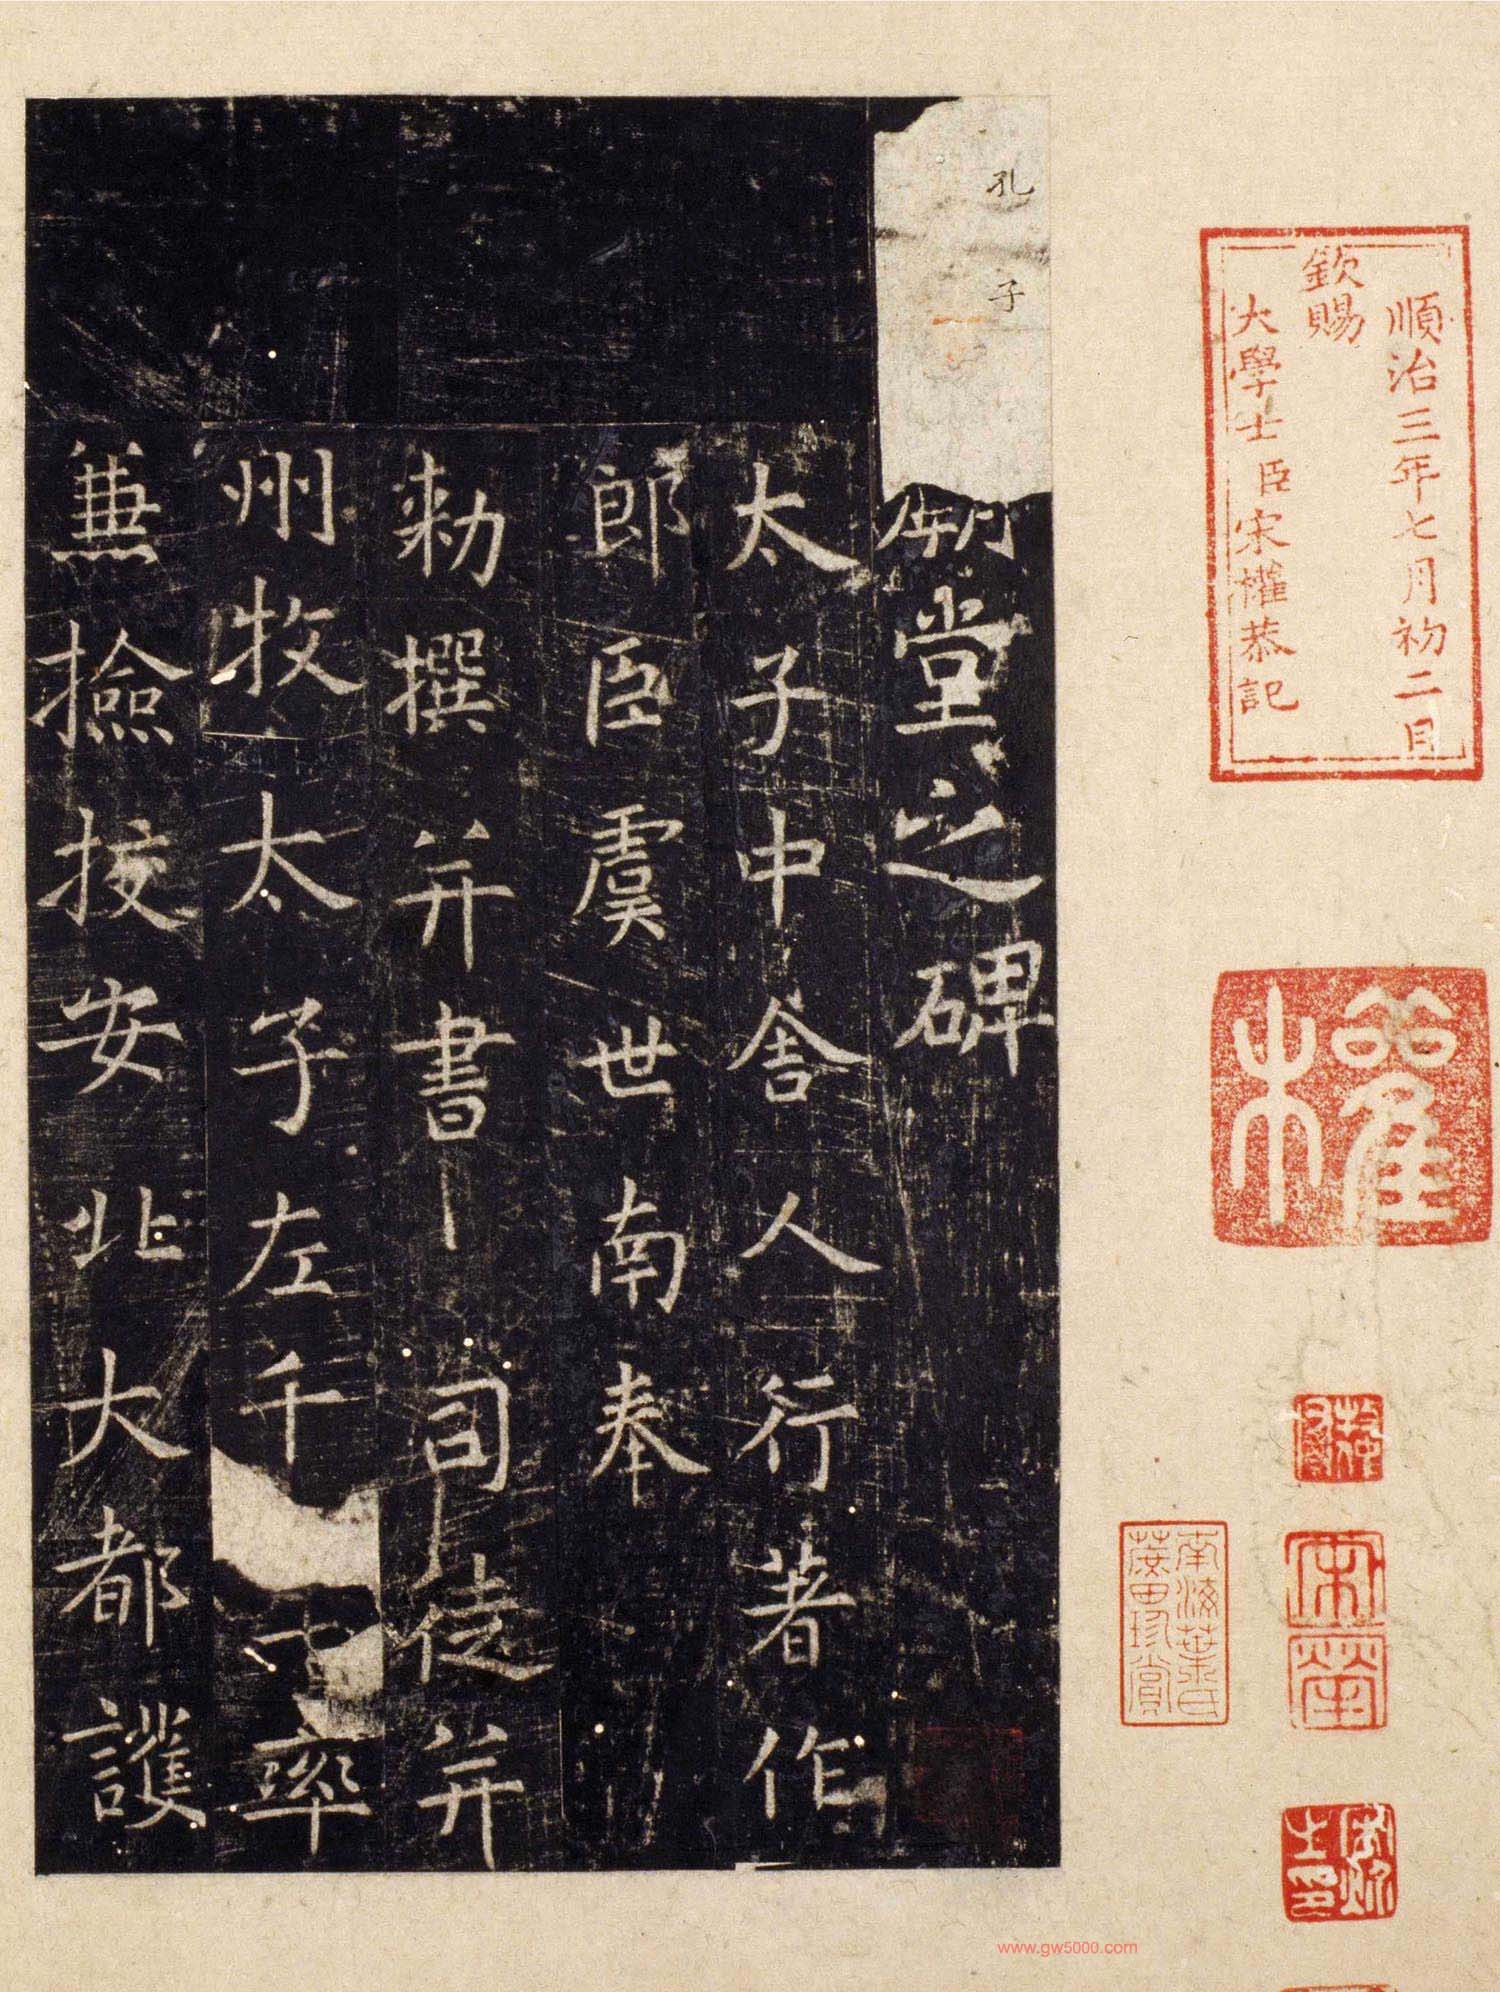 順治三年七月初二日
欽賜
大學士臣宋權恭記
權
宋犖
南海葉氏
蔗田珍賞
孔子
廟堂之碑
太子中舍人行著作
郎臣虞世南奉
勑撰并書 司徒并
州牧太子左千 率
兼撿挍安北大都護
www.gw5000.com